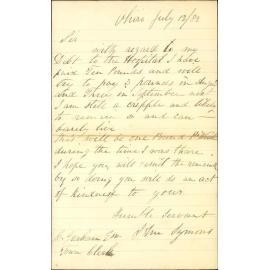 Ohiro July 12/82
Sir
with regard to my
Debt to the Hospital I have
paid Ten Pounds and will
try to pay 3 pounds in August
and three in September next
I am still a cripple and likely
to remain so and can
barely live
this will be one Pound
during the time I was there
I hope you will remit the remainder
by so doing you will do an act
of kindness to your
Humble Servant
John Symons
Esqr
Town Clerk